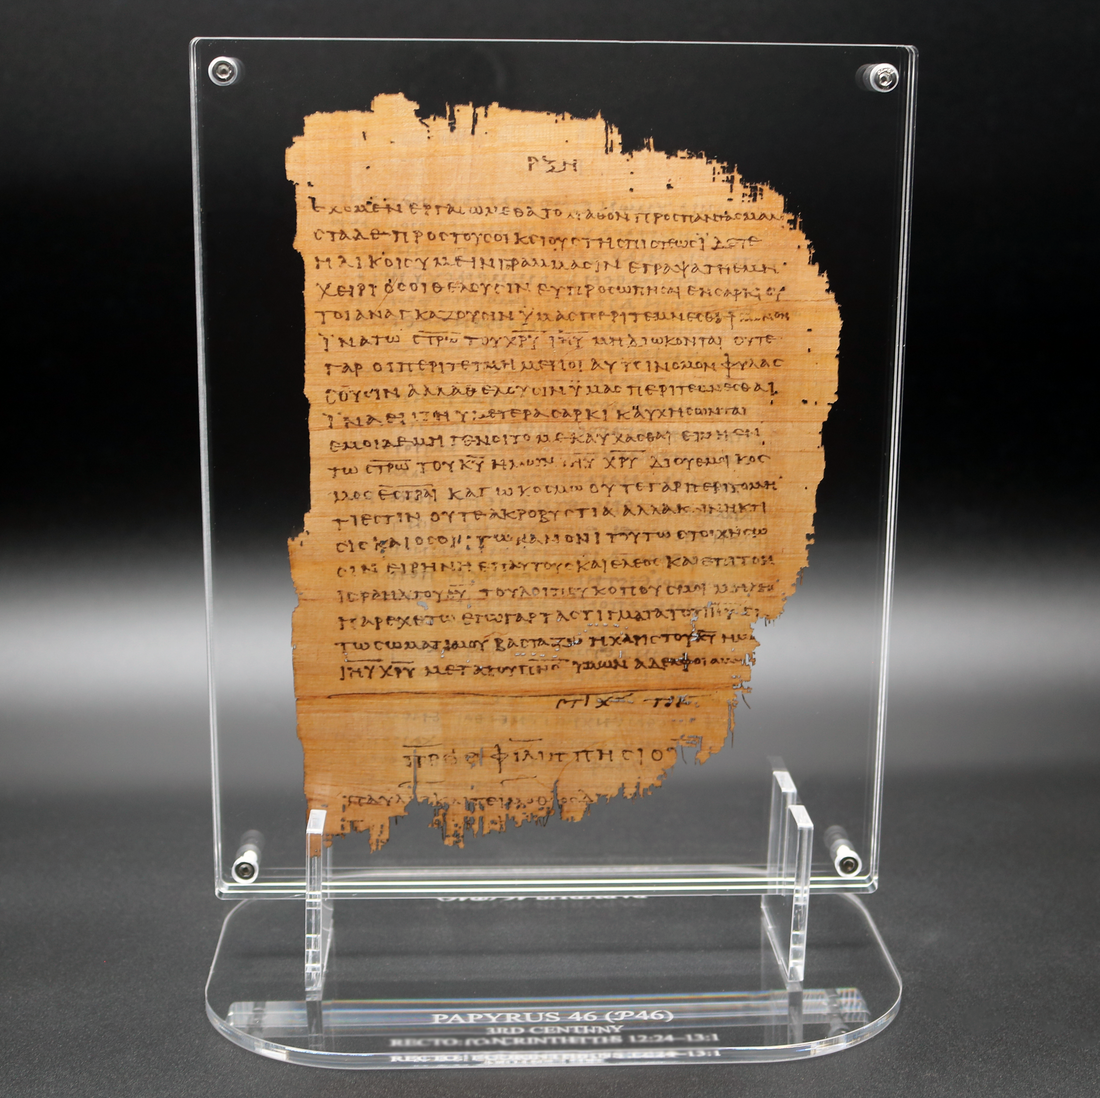 ΡΞΗ
ΕΧΟΜΕΝ ΕΡΓΑϹΩΜΕΘΑ ΤΟ ΑΓΑΘΟΝ ΠΡΟϹ ΠΑΝΤΑϹ ΜΑΛΙ
ϹΤΑ ΔΕ ΠΡΟϹ ΤΟΥϹ ΟΙΚΕΙΟΥϹ ΤΗϹ ΠΙϹΤΕΩϹ ΪΔΕΤΕ
ΗΛΙΚΟΙϹ ΥΜΕΙΝ ΓΡΑΜΜΑϹΙΝ ΕΓΡΑΨΑ ΤΗ ΕΜΗ
ΧΕΙΡΙ ΟϹΟΙ ΘΕΛΟΥϹΙΝ ΕΥΠΡΟϹΩΠΗϹΑΙ ΕΝ ϹΑΡΚΙ ΟΥ
ΤΟΙ ΑΝΑΓΚΑΖΟΥϹΙΝ ΫΜΑϹ ΠΕΡΙΤΕΜΝΕϹΘΑΙ ΜΟΝΟΝ
ΪΝΑ ΤΩ Ϲ̅Τ̅Ρ̅Ω̅ ΤΟΥ Χ̅Ρ̅Υ̅ Ι̅Η̅Υ̅ ΜΗ ΔΙΩΚΟΝΤΑΙ ΟΥΤΕ
ΓΑΡ ΟΙ ΠΕΡΙΤΕΤΜΗΜΕΝΟΙ ΑΥΤΟΙ ΝΟΜΟΝ ΦΥΛΑϹ
ϹΟΥϹΙΝ ΑΛΛΑ ΘΕΛΟΥϹΙΝ ΫΜΑϹ ΠΕΡΙΤΕΜΝΕϹΘΑΙ
ΪΝΑ ΕΝ ΤΗ ΥΜΕΤΕΡΑ ϹΑΡΚΙ ΚΑΥΧΗϹΩΝΤΑΙ
ΕΜΟΙ ΔΕ ΜΗ ΓΕΝΟΙΤΟ ΜΕ ΚΑΥΧΑϹΘΑΙ ΕΙ ΜΗ ΕΝ
ΤΩ Ϲ̅Τ̅Ρ̅Ω̅ ΤΟΥ Κ̅Υ̅ ΗΜΩΝ Ι̅Η̅Υ̅ Χ̅Ρ̅Υ̅ ΔΙ ΟΥ ΕΜΟΙ ΚΟϹ
ΜΟϹ Ε̅Ϲ̅Τ̅Ρ̅Α̅Ι̅ ΚΑΓΩ ΚΟϹΜΩ ΟΥΤΕ ΓΑΡ ΠΕΡΙΤΟΜΗ
ΤΙ ΕϹΤΙΝ ΟΥΤΕ ΑΚΡΟΒΥϹΤΙΑ ΑΛΛΑ ΚΑΙΝΗ ΚΤΙ
ϹΙϹ ΚΑΙ ΟϹΟΙ ΤΩ ΚΑΝΟΝΙ ΤΟΥΤΩ ϹΤΟΙΧΗϹΩ
ϹΙΝ ΕΙΡΗΝΗ ΕΠ ΑΥΤΟΥϹ ΚΑΙ ΕΛΕΟϹ ΚΑΙ ΕΠΙ ΤΟΝ
ΙϹΡΑΗΛ ΤΟΥ Θ̅Υ̅ ΤΟΥ ΛΟΙΠΟΥ ΚΟΠΟΥϹ ΜΟΙ ΜΗΔΕΙϹ
ΠΑΡΕΧΕΤΩ ΕΓΩ ΓΑΡ ΤΑ ϹΤΙΓΜΑΤΑ ΤΟΥ Ι̅Η̅Υ̅ ΕΝ
ΤΩ ϹΩΜΑΤΙ ΜΟΥ ΒΑϹΤΑΖΩ Η ΧΑΡΙϹ ΤΟΥ Κ̅Υ̅ ΗΜ
Ι̅Η̅Υ̅ Χ̅Ρ̅Υ̅ ΜΕΤΑ ΤΟΥ Π̅Ν̅Ϲ̅ ΥΜΩΝ ΑΔΕΛΦΟΙ ΑΜ
ϹΤΙΧ ΤΟΕ
ΠΡΟϹ ΦΙΛΙΠΠΗϹΙΟΥ
ΠΑΥΛΟϹ ΚΑΙ ΤΕΙΜΟΘΕΟϹ Δ
PAPYRUS 46 (P46)
3RD CENTURY
RECTO: 12:24–13:1